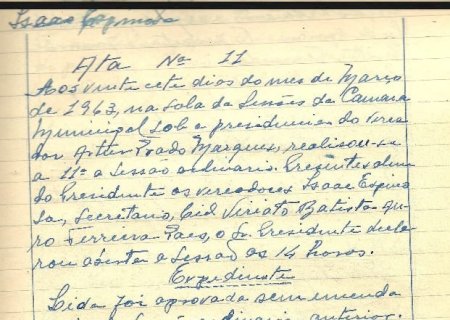 Isaac Espinosa
Ata Nº 11
Aos vinte cete dias do mes de Março
de 1963, na Sala da Sessões da Camara
Municipal sob a presidencia do Verea
dor Prado Marques, realisou-se
a 11ª a Sessão ordinaria. Presentes alem
do Presidente os vereadores Isaac Espino
sa, Secretario, Cid Viriato Batista
Ferreira Paes, o Sr. Presidente decla
rou aberta a Sessão as 14 horas.
Expediente
Lida foi aprovada sem emenda
anterior.